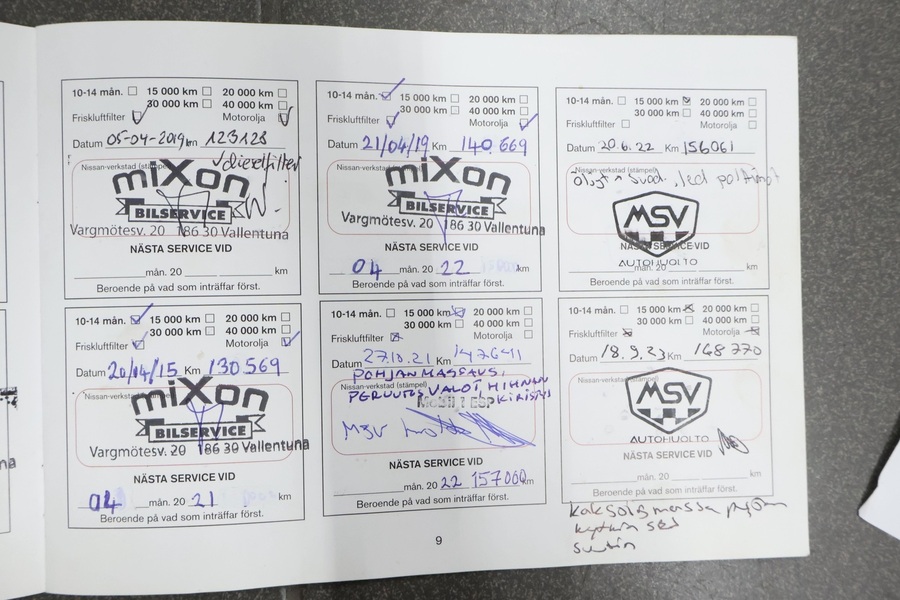 10-14 mån. 15 000 km 20 000 km
30 000 km 40 000 km
Friskluftfilter Motorolja
Datum 05-04-2019 km 123128
Nissan-verkstad (stämpel) dieselfilter
miXon
BILSERVICE
Vargmötesv. 20 186 30 Vallentuna
NÄSTA SERVICE VID
mån. 20 km
Beroende på vad som inträffar först.
10-14 mån. 15 000 km 20 000 km
30 000 km 40 000 km
Friskluftfilter Motorolja
Datum 20/04/15 Km 130.569
Nissan-verkstad (stämpel)
miXon
BILSERVICE
Vargmötesv. 20 186 30 Vallentuna
NÄSTA SERVICE VID
04 mån. 20 21 km
Beroende på vad som inträffar först.
10-14 mån. 15 000 km 20 000 km
30 000 km 40 000 km
Friskluftfilter Motorolja
Datum 21/04/19 Km 140.669
Nissan-verkstad (stämpel)
miXon
BILSERVICE
Vargmötesv. 20 186 30 Vallentuna
NÄSTA SERVICE VID
04 mån. 20 22 km
Beroende på vad som inträffar först.
10-14 mån. 15 000 km 20 000 km
30 000 km 40 000 km
Friskluftfilter Motorolja
Datum 27.10.21 Km 147641
POHJANMASSAUS,
Nissan-verkstad (stämpel)
PERUUTUSVALOT, HIHNAN
KIRISTYS
Mobil 1 ESP
MSV
NÄSTA SERVICE VID
mån. 20 22 157000 km
Beroende på vad som inträffar först.
10-14 mån. 15 000 km 20 000 km
30 000 km 40 000 km
Friskluftfilter Motorolja
Datum 20.6.22 Km 156061
Nissan-verkstad (stämpel)
MSV
AUTOHUOLTO
NÄSTA SERVICE VID
mån. 20 km
Beroende på vad som inträffar först.
10-14 mån. 15 000 km 20 000 km
30 000 km 40 000 km
Friskluftfilter Motorolja
Datum 18.9.23 Km 168770
Nissan-verkstad (stämpel)
MSV
AUTOHUOLTO
NÄSTA SERVICE VID
mån. 20 km
Beroende på vad som inträffar först.
9